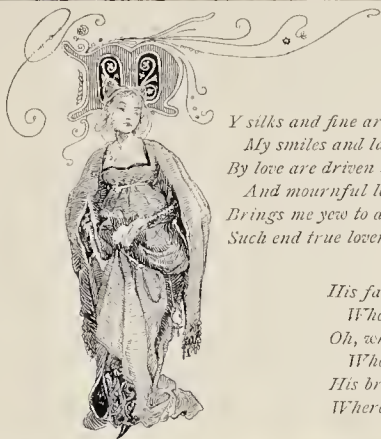 MY silks and fine ar
My smiles and la
By love are driven
And mournful l
Brings me yew to
Such end true lover
His fa
Whe
Oh, wh
Whe
His br
Where